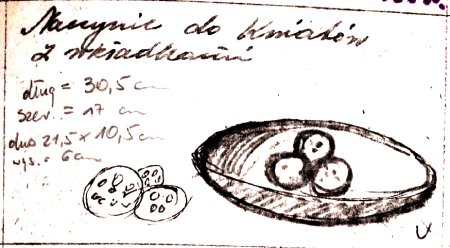 Naczynie do Kwiatów
z wkładkami
dług = 30,5 cm
szer. = 17 cm
dno 21,5 x 10,5 cm
wys. = 6 cm